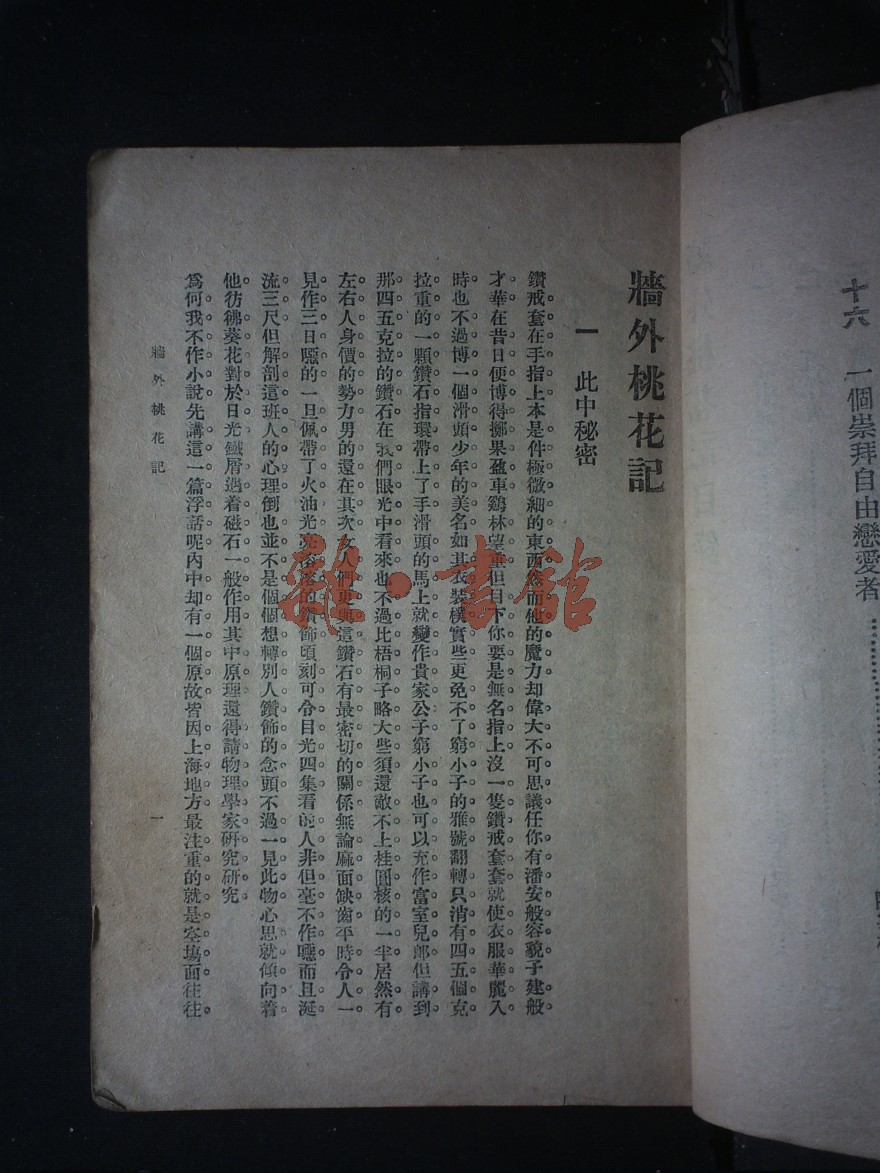 十六　一個崇拜自由戀愛者……………
牆外桃花記
一　此中秘密
鑽戒套在手指上本是件極微細的東西然而他的魔力却偉大不可思議任你有潘安般容貌子建般
才華在昔日便博得擲果盈車鷄林望重但目下你要是無名指上沒一隻鑽戒套套就使衣服華麗入
時也不過博一個滑頭少年的美名如其衣裝樸實些更免不了窮小子的雅號翻轉只消有四五個克
拉重的一顆鑽石指環帶上了手滑頭的馬上就變作貴家公子窮小子也可以充作富室兒郎但講到
那四五克拉的鑽石在我們眼光中看來也不過比梧桐子略大些須還敵不上桂圓核的一半居然有
左右人身價的勢力男的還在其次女人們更與這鑽石有最密切的關係無論麻面缺齒平時令人一
見作三日噁的一旦佩帶了火油光亮的鑽飾頃刻可令目光四集看的人非但毫不作噁而且涎
流三尺但解剖這班人的心理倒也並不是個個想轉別人鑽飾的念頭不過一見此物心思就傾向着
他彷彿葵花對於日光鐵屑過着磁石一般作用其中原理還得請物理學家研究研究
爲何我不作小說先講這一篇浮話呢內中却有一個原故皆因上海地方最注重的就是空塲面往往
牆外桃花記
一
雜·書館